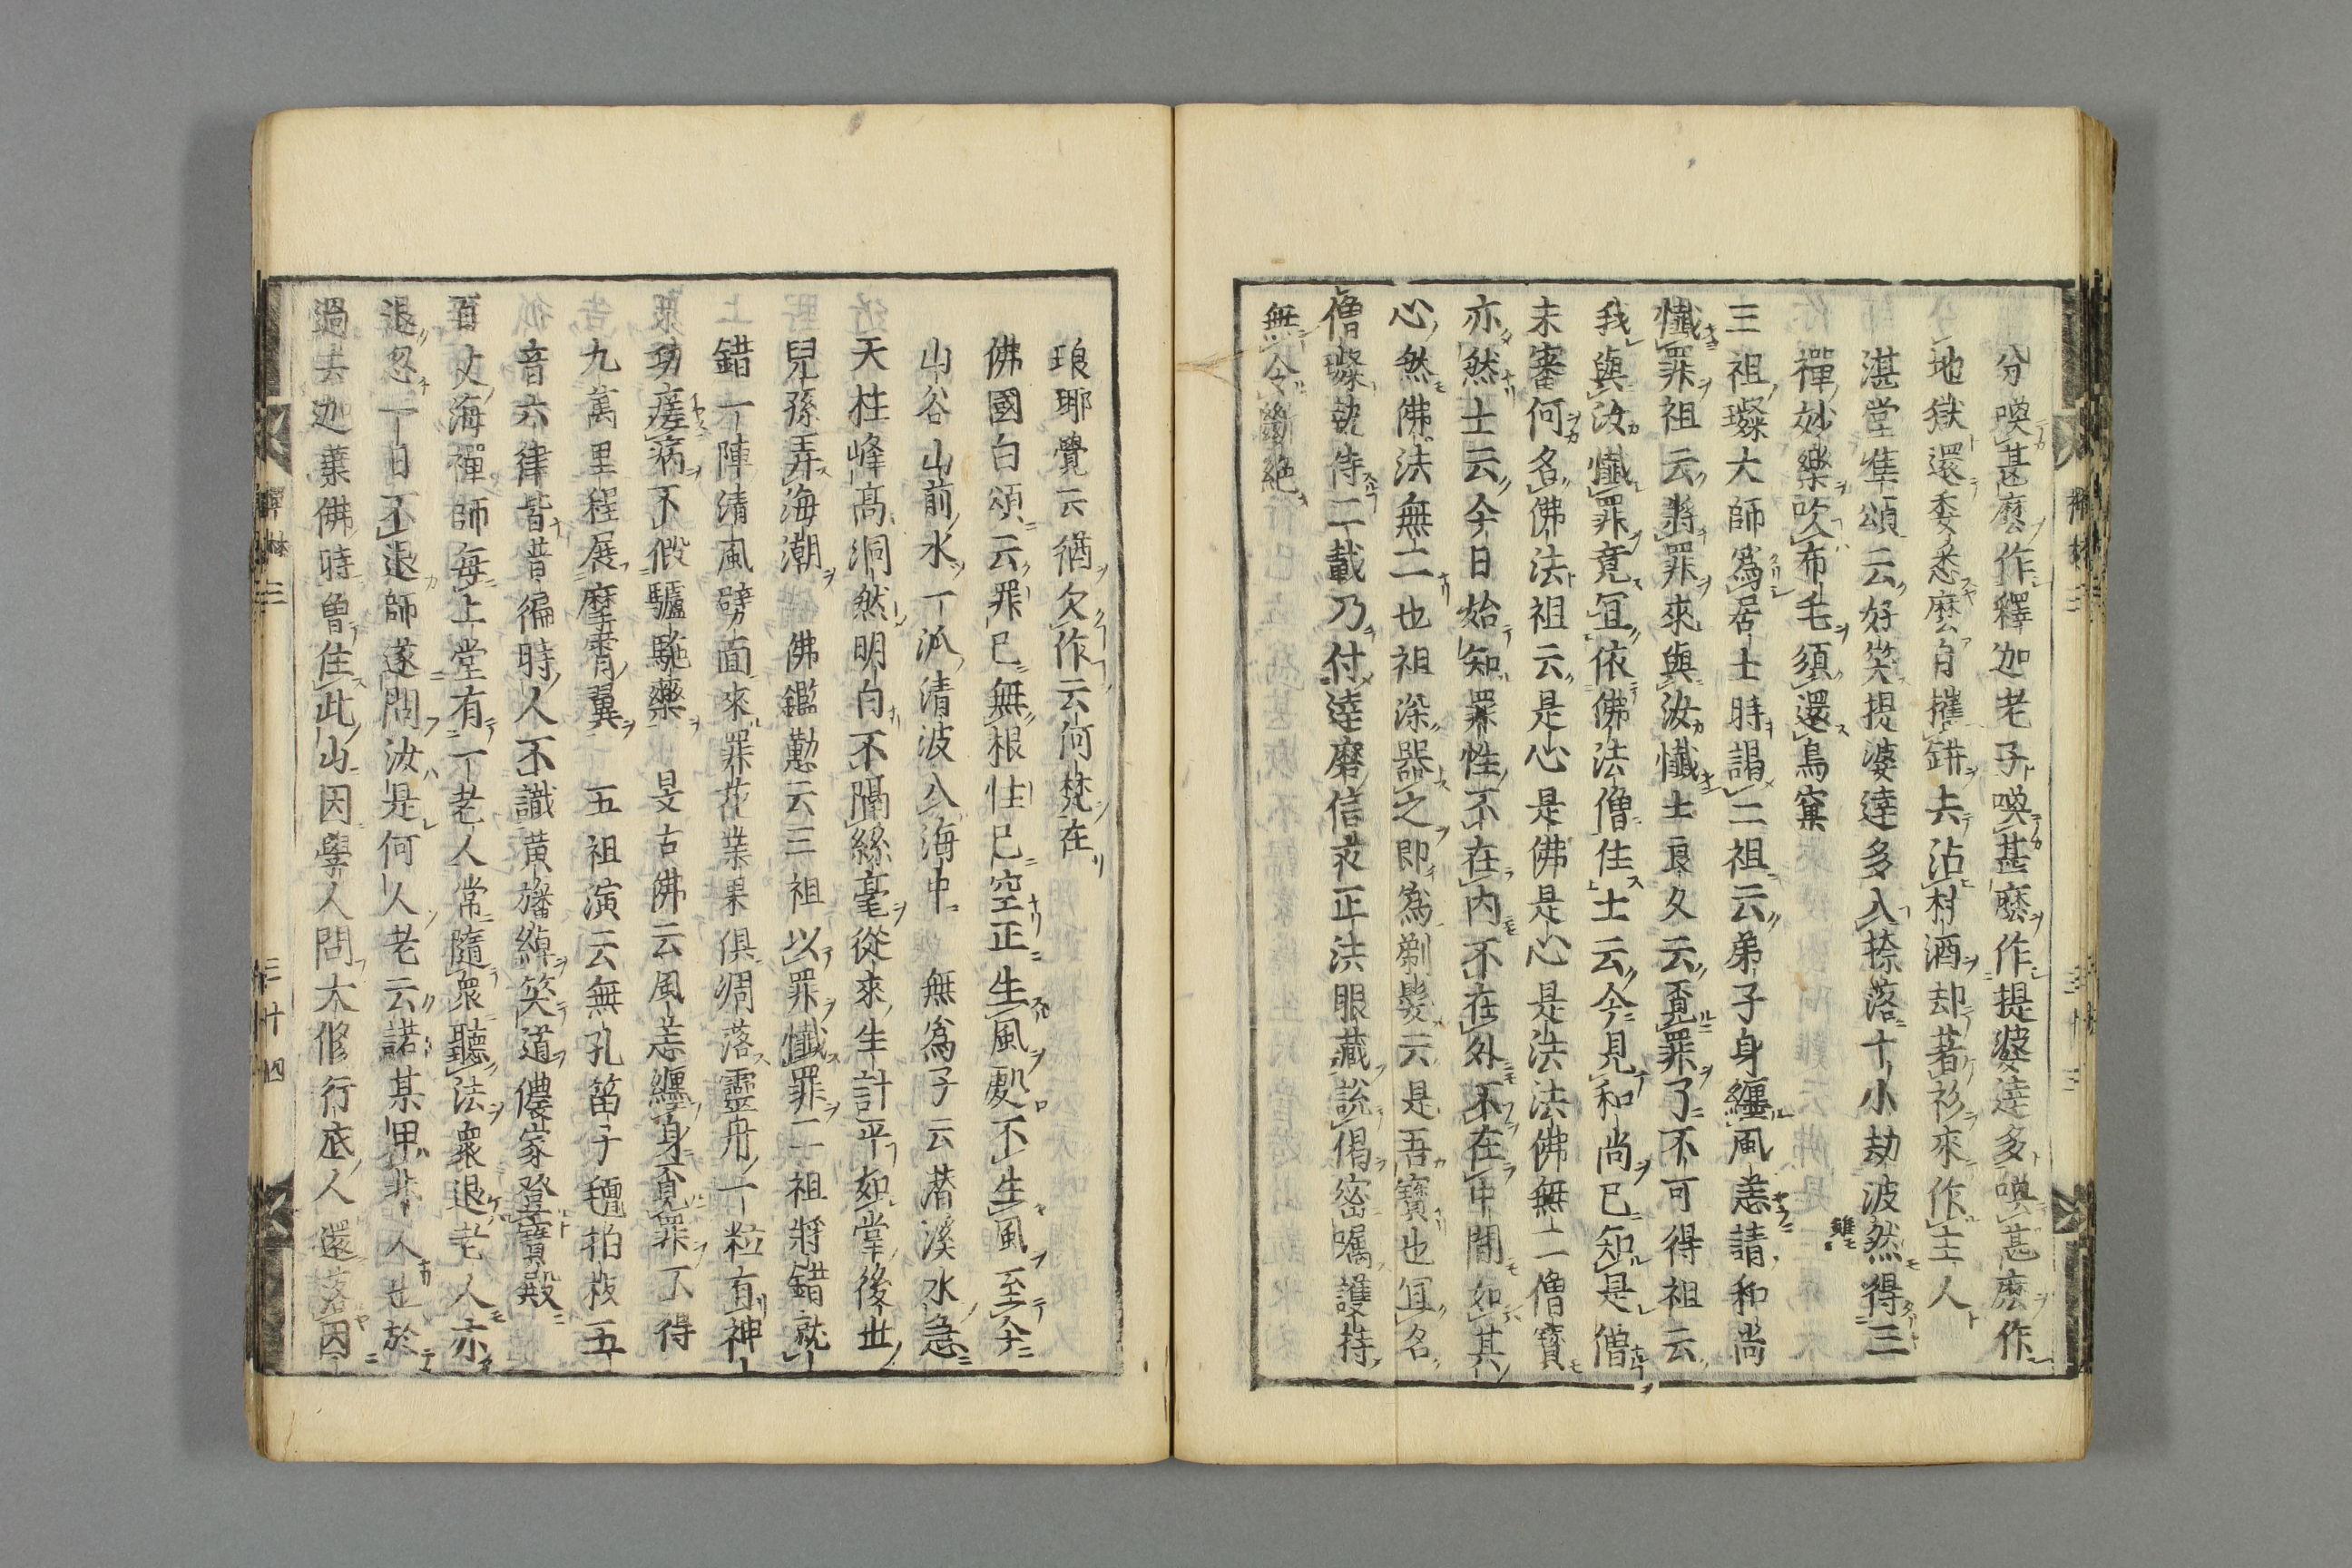 分喚甚麽作釋迦老子喚甚麽作提婆達多喚甚麽作
地獄還委悉麽自攜缾去沽村酒却著衫來作主人
湛堂準頌云好笑提婆達多入捺落十小劫波然得三
雖モ
禪妙樂吹布毛須還鳥窠
三祖璨大師爲居士時謁二祖云弟子身纏風恙請和尚
懺罪祖云將罪來與汝懺士良久云覓罪了不可得祖云
我與汝懺罪竟冝依佛法僧住士云今見和尚已知是僧
未審何名佛法祖云是心是佛是心是法法佛無二僧寶
亦然士云今日始知罪性不在内不在外不在中間如其
心然佛法無二也祖深器之即爲剃髮云是吾寶也冝名
僧璨執侍二載乃付達磨信衣正法眼藏說偈密囑護持
無令斷絶
琅瑘覺云猶欠作云何梵在
佛國白頌云罪已無根性已空正生風處不生風至今
山谷山前水一派清波入海中 無爲子云潛溪水急
天柱峰高洞然明白不隔絲毫從來生計平如掌後世
兒孫弄海潮 佛鑑懃云三祖以罪懺罪二祖將錯就
錯一陣清風劈面來罪花業果俱凋落靈舟一粒有神
功瘥病不假驢駞藥 旻古佛云風恙纏身覓罪不得
九萬里程展摩霄翼 五祖演云無孔笛子氊拍板五
音六律皆普徧時人不識黄旛綽笑道儂家登寶殿
百丈海禪師每上堂有一老人常隨衆聽法衆退老人亦
退忽一日不退師遂問汝是何人老云諾某甲非人也於
過去迦葉佛時曾住此山因學人問大修行底人還落因
三十三
禪林三
三十四